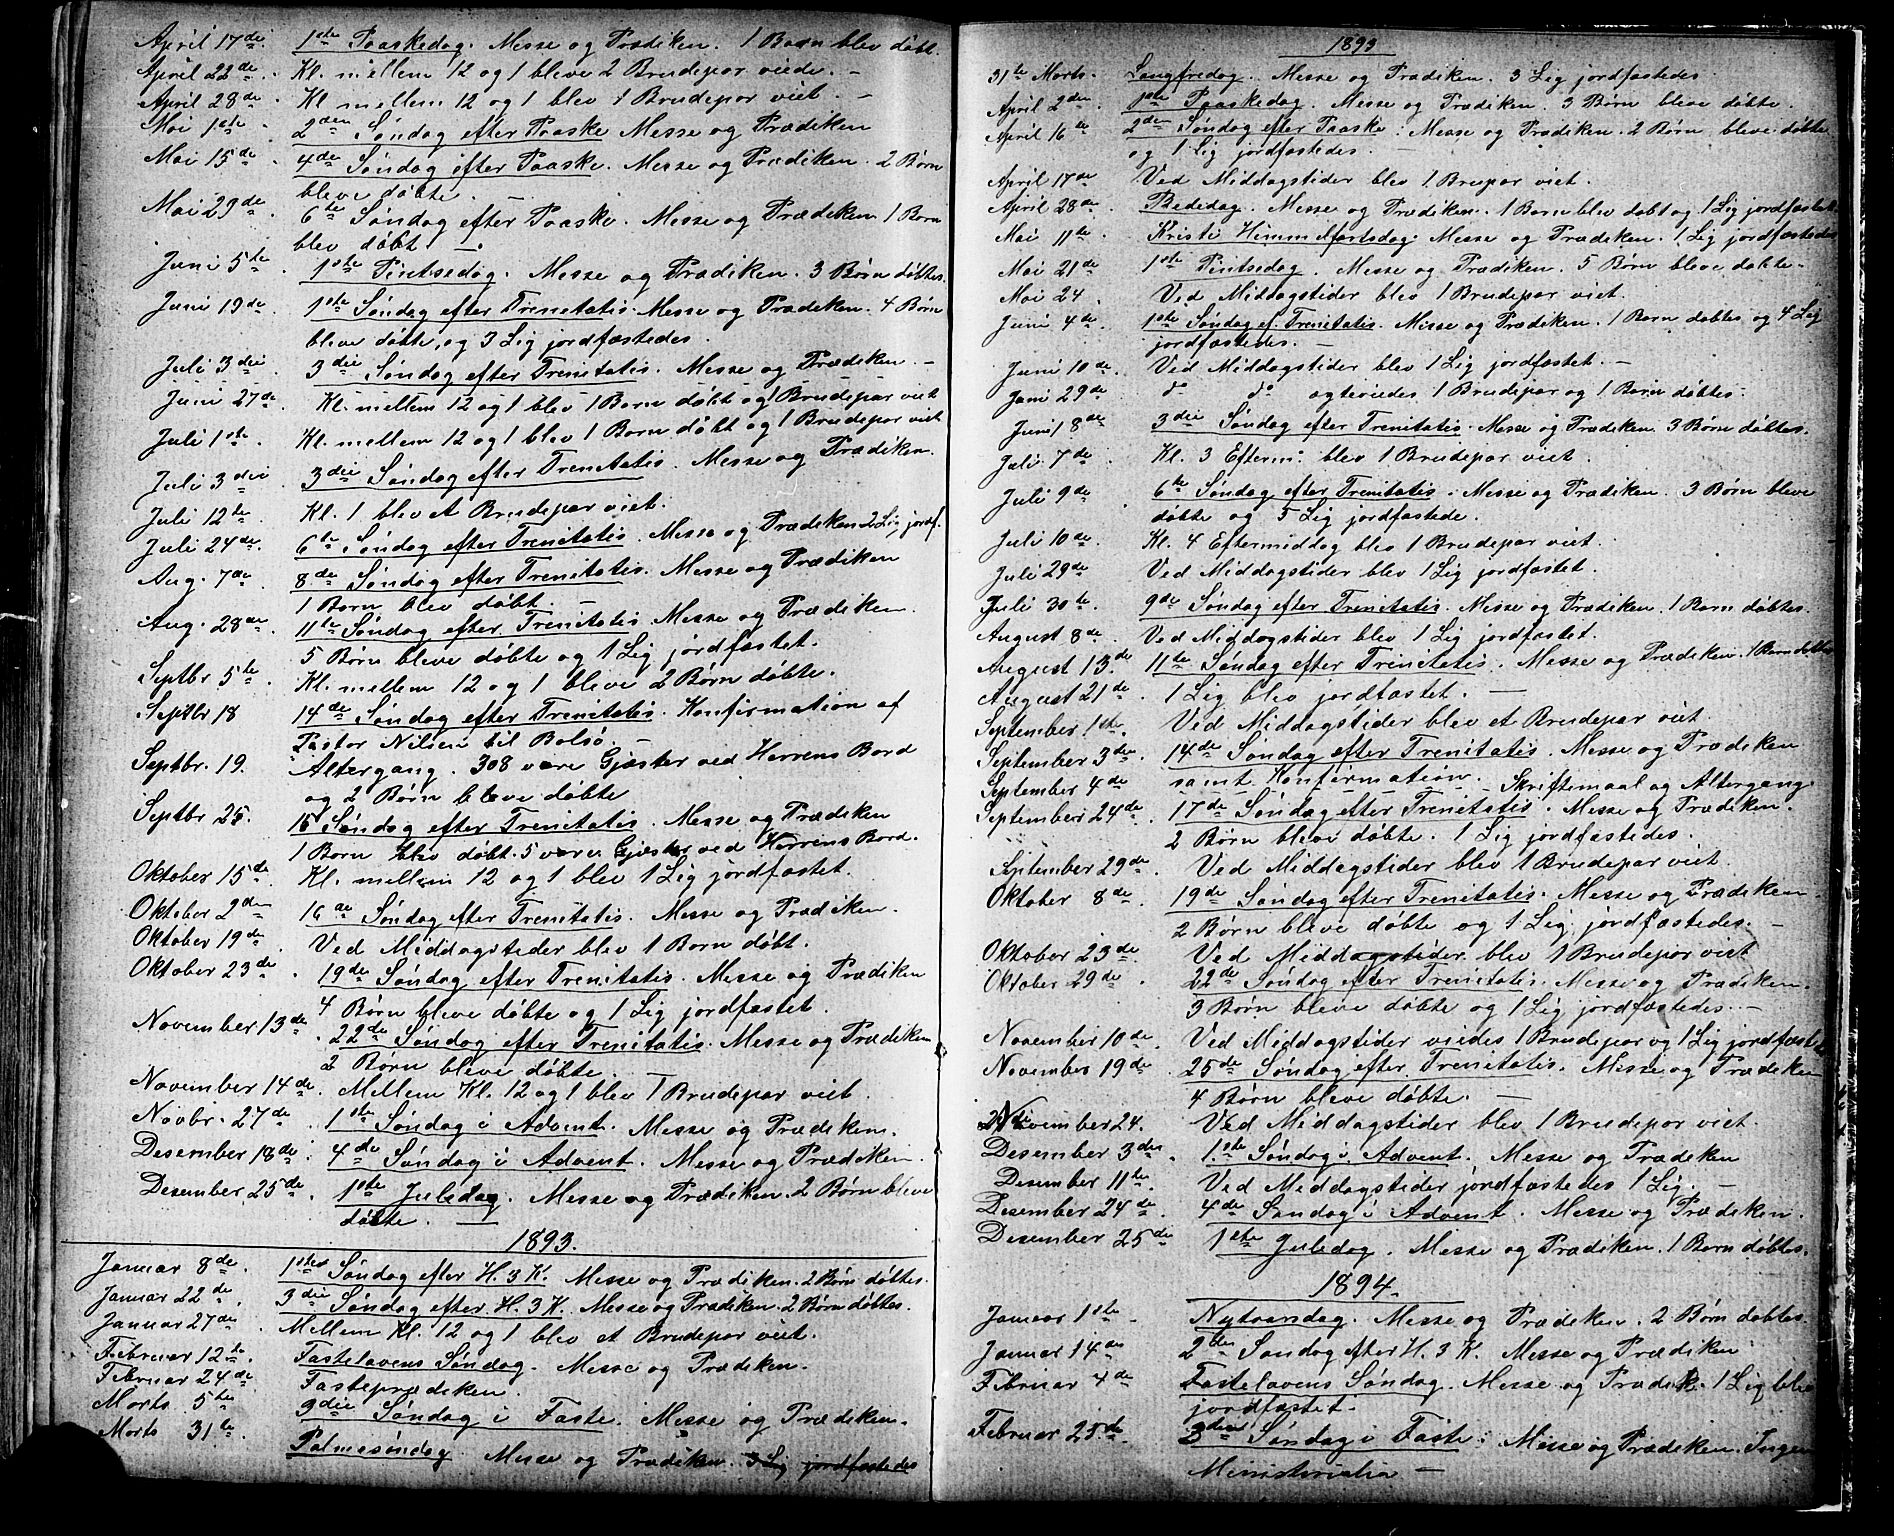 April 17de. 1ste Paaskedag. Messe og Prædiken. 1 Barn blev døbt.
April 22de. Kl. mellem 12 og 1 bleve 2 Brudepar viede. –
April 28de Kl. mellem 12 og 1 blev 1 Brudepar viet. –
Mai 1ste 2den Søndag efter Paaske Messe og Prædiken
Mai 15de 4de Søndag efter Paaske. Messe og Prædiken. 2 Børn
bleve døbte. –
Mai 29de 6te Søndag efter Paaske. Messe og Prædiken 1 Barn
blev døbt –.
Juni 5te 1ste Pintsedag. Messe og Prædiken. 3 Børn døbtes.
Juni 19de 1ste Søndag efter Trenitatis. Messe og Prædiken. 4 Børn
bleve døbte, og 3 Lig jordfæstedes.
Juli 3die 3die Søndag efter Trenitatis. Messe og Prædiken. –
Juni 27de Kl. mellem 12 og 1 blev 1 Barn døbt og 1 Brudepar viet
Juli 1ste. Kl. mellem 12 og 1 blev 1 Barn døbt og 1 Brudepar viet
Juli 3die 3die Søndag efter Trenitatis. Messe og Prædiken.
Juli 12te Kl. 1 blev et Brudepar viet.
Juli 24de. 6te Søndag efter Trenitatis. Messe og Prædiken 2 Lig jordf.
Aug. 7de 8de Søndag efter Trenitatis. Messe og Prædiken
1 Barn blev døbt –
Aug. 28de 11te Søndag efter Trenitatis Messe og Prædiken.
5 Børn bleve døbte og 1 Lig jordfæstet.
Septbr 5te Kl. mellem 12 og 1 bleve 2 Børn døbte.
Septbr 18 14de Søndag efter Trenitatis. Konfirmation af
Pastor Nilsen til Bolsø. –
Septbr. 19. Altergang. 308 vare Gjæster ved Herrens Bord
og 2 Børn bleve døbte
Septbr 25. 15 Søndag efter Trenitatis. Messe og Prædiken
1 Barn blev døbt. 5 vare Gjæster ved Herrens Bord.
Oktober 15de Kl. mellem 12 og 1 blev 1 Lig jordfæstet.
Oktober 2den 16de Søndag efter Trenitatis. Messe og Prædiken.
Oktober 19de Ved Middagstider blev 1 Barn døbt.
Oktober 23de 19de Søndag efter Trenitatis. Messe og Prædiken
4 Børn bleve døbte og 1 Lig jordfæstet.
November 13de 22de Søndag efter Trenitatis. Messe og Prædiken
2 Børn bleve døbte. –
November 14de Mellem Kl. 12 og 1 blev 1 Brudepar viet.
Novbr. 27de 1ste Søndag i Advent. Messe og Prædiken.
Desember 18de 4de Søndag i Advent. Messe og Prædiken.
Desember 25de 1ste Juledag. Messe og Prædiken. 2 Børn bleve
døbte. –
1893.
Januar 8de 1ste Søndag efter H. 3 K. Messe og Prædiken. 2 Børn døbtes.
Januar 22de 3die Søndag efter H. 3 K. Messe og Prædiken. 2 Børn døbtes.
Januar 27de Mellem Kl. 12 og 1 blev et Brudepar viet.
Februar 12te Fastelavens Søndag. Messe og Prædiken.
Februar 24de Fasteprædiken.
Marts 5te 3die Søndag i Faste. Messe og Prædiken.
Marts 31te Palmesøndag Messe og Prædiken. 3 Lig jordfæstedes
1893
31te Marts. Langfredag. Messe og Prædiken. 3 Lig jordfæstedes
April 2den 1ste Paaskedag. Messe og Prædiken. 3 Børn bleve døbte.
April 16de 2den Søndag efter Paaske. Messe og Prædiken. 2 Børn bleve døbte
og 1 Lig jordfæstedes. –
April 17de Ved Middagstider blev 1 Brupar viet.
April 28de Bededag. Messe og Prædiken. 1 Barn blev døbt og 1 Lig jordfæstet.
Mai 11te Kristi Himmelfartsdag. Messe og Prædiken. 1 Lig jordfæstedes
Mai 21de 1ste Pintsedag. Messe og Prædiken. 5 Børn bleve døbte.
Mai 24 Ved Middagstider blev 1 Brudepar viet.
Juni 4de 1ste Søndag ef. Trenitatis. Messe og Prædiken. 1 Barn døbtes og 4 Lig
jordfæstedes. –
Juni 10de Ved Middagstider blev 1 Lig jordfæstet. –
Juni 29de do do ægteviedes 1 Brudepar og 1 Barn døbtes.
Juni 18de 3die Søndag efter Trenitatis. Messe og Prædiken. 3 Børn døbtes.
Juli 7de Kl. 3 Efterm. blev 1 Brudepar viet.
Juli 9de 6te Søndag efter Trenitatis. Messe og Prædiken. 3 Børn bleve
døbte og 5 Lig jordfæstede.
Juli 10de Kl. 4 Eftermiddag blev 1 Brudepar viet.
Juli 29de Ved Middagstider blev 1 Lig jordfæstet.
Juli 30te 9de Søndag efter Trenitatis. Messe og Prædiken. 1 Barn døbtes.
August 8de Ved Middagstider blev 1 Lig jordfæstet.
August 13de 11te Søndag efter Trenitatis. Messe og Prædiken. 1 Barn døbtes
August 21de 1 Lig blev jordfæstet. –
September 1ste Ved Middagstider blev et Brudepar viet.
September 3die 14de Søndag efter Trenitatis. Messe og Prædiken
samt Konfirmation.
September 4de Skriftemaal og Altergang
September 24de 17de Søndag efter Trenitatis. Messe og Prædiken.
2 Børn bleve døbte. 1 Lig jordfæstedes.
September 29de Ved Middagstider blev 1 Brudepar viet.
Oktober 8de 19de Søndag efter Trenitatis. Messe og Prædiken
2 Børn bleve døbte og 1 Lig jordfæstedes. –
Oktober 23de Ved Middagstider blev 1 Brudepar viet
Oktober 29de 22de Søndag efter Trenitatis. Messe og Prædiken.
3 Børn bleve døbte og 1 Lig jordfæstedes. –
November 10de Ved Middagstider viedes 1 Brudepar og 1 Lig jordfæstet
November 19de 25de Søndag efter Trenitatis. Messe og Prædiken
4 Børn bleve døbte. –
November 24. Ved Middagstider blev 1 Brudepar viet.
Desember 3die 1.ste Søndag i Advent. Messe og Prædiken
Desember 11te Ved Middagstider jordfæstedes 1 Lig. –
Desember 24de 4de Søndag i Advent. Messe og Prædiken.
Desember 25de 1ste Juledag. Messe og Prædiken. 1 Barn døbtes.
1894.
Januar 1ste Nytaarsdag. Messe og Prædiken. 2 Børn døbtes.
Januar 14de 2den Søndag efter H. 3 K. Messe og Prædiken
Februar 4de Fastelavens Søndag. Messe og Prædik. 1 Lig blev
jordfæstet.
Februar 25de 3die Søndag i Faste. Messe og Prædiken. Ingen
Ministerialia –